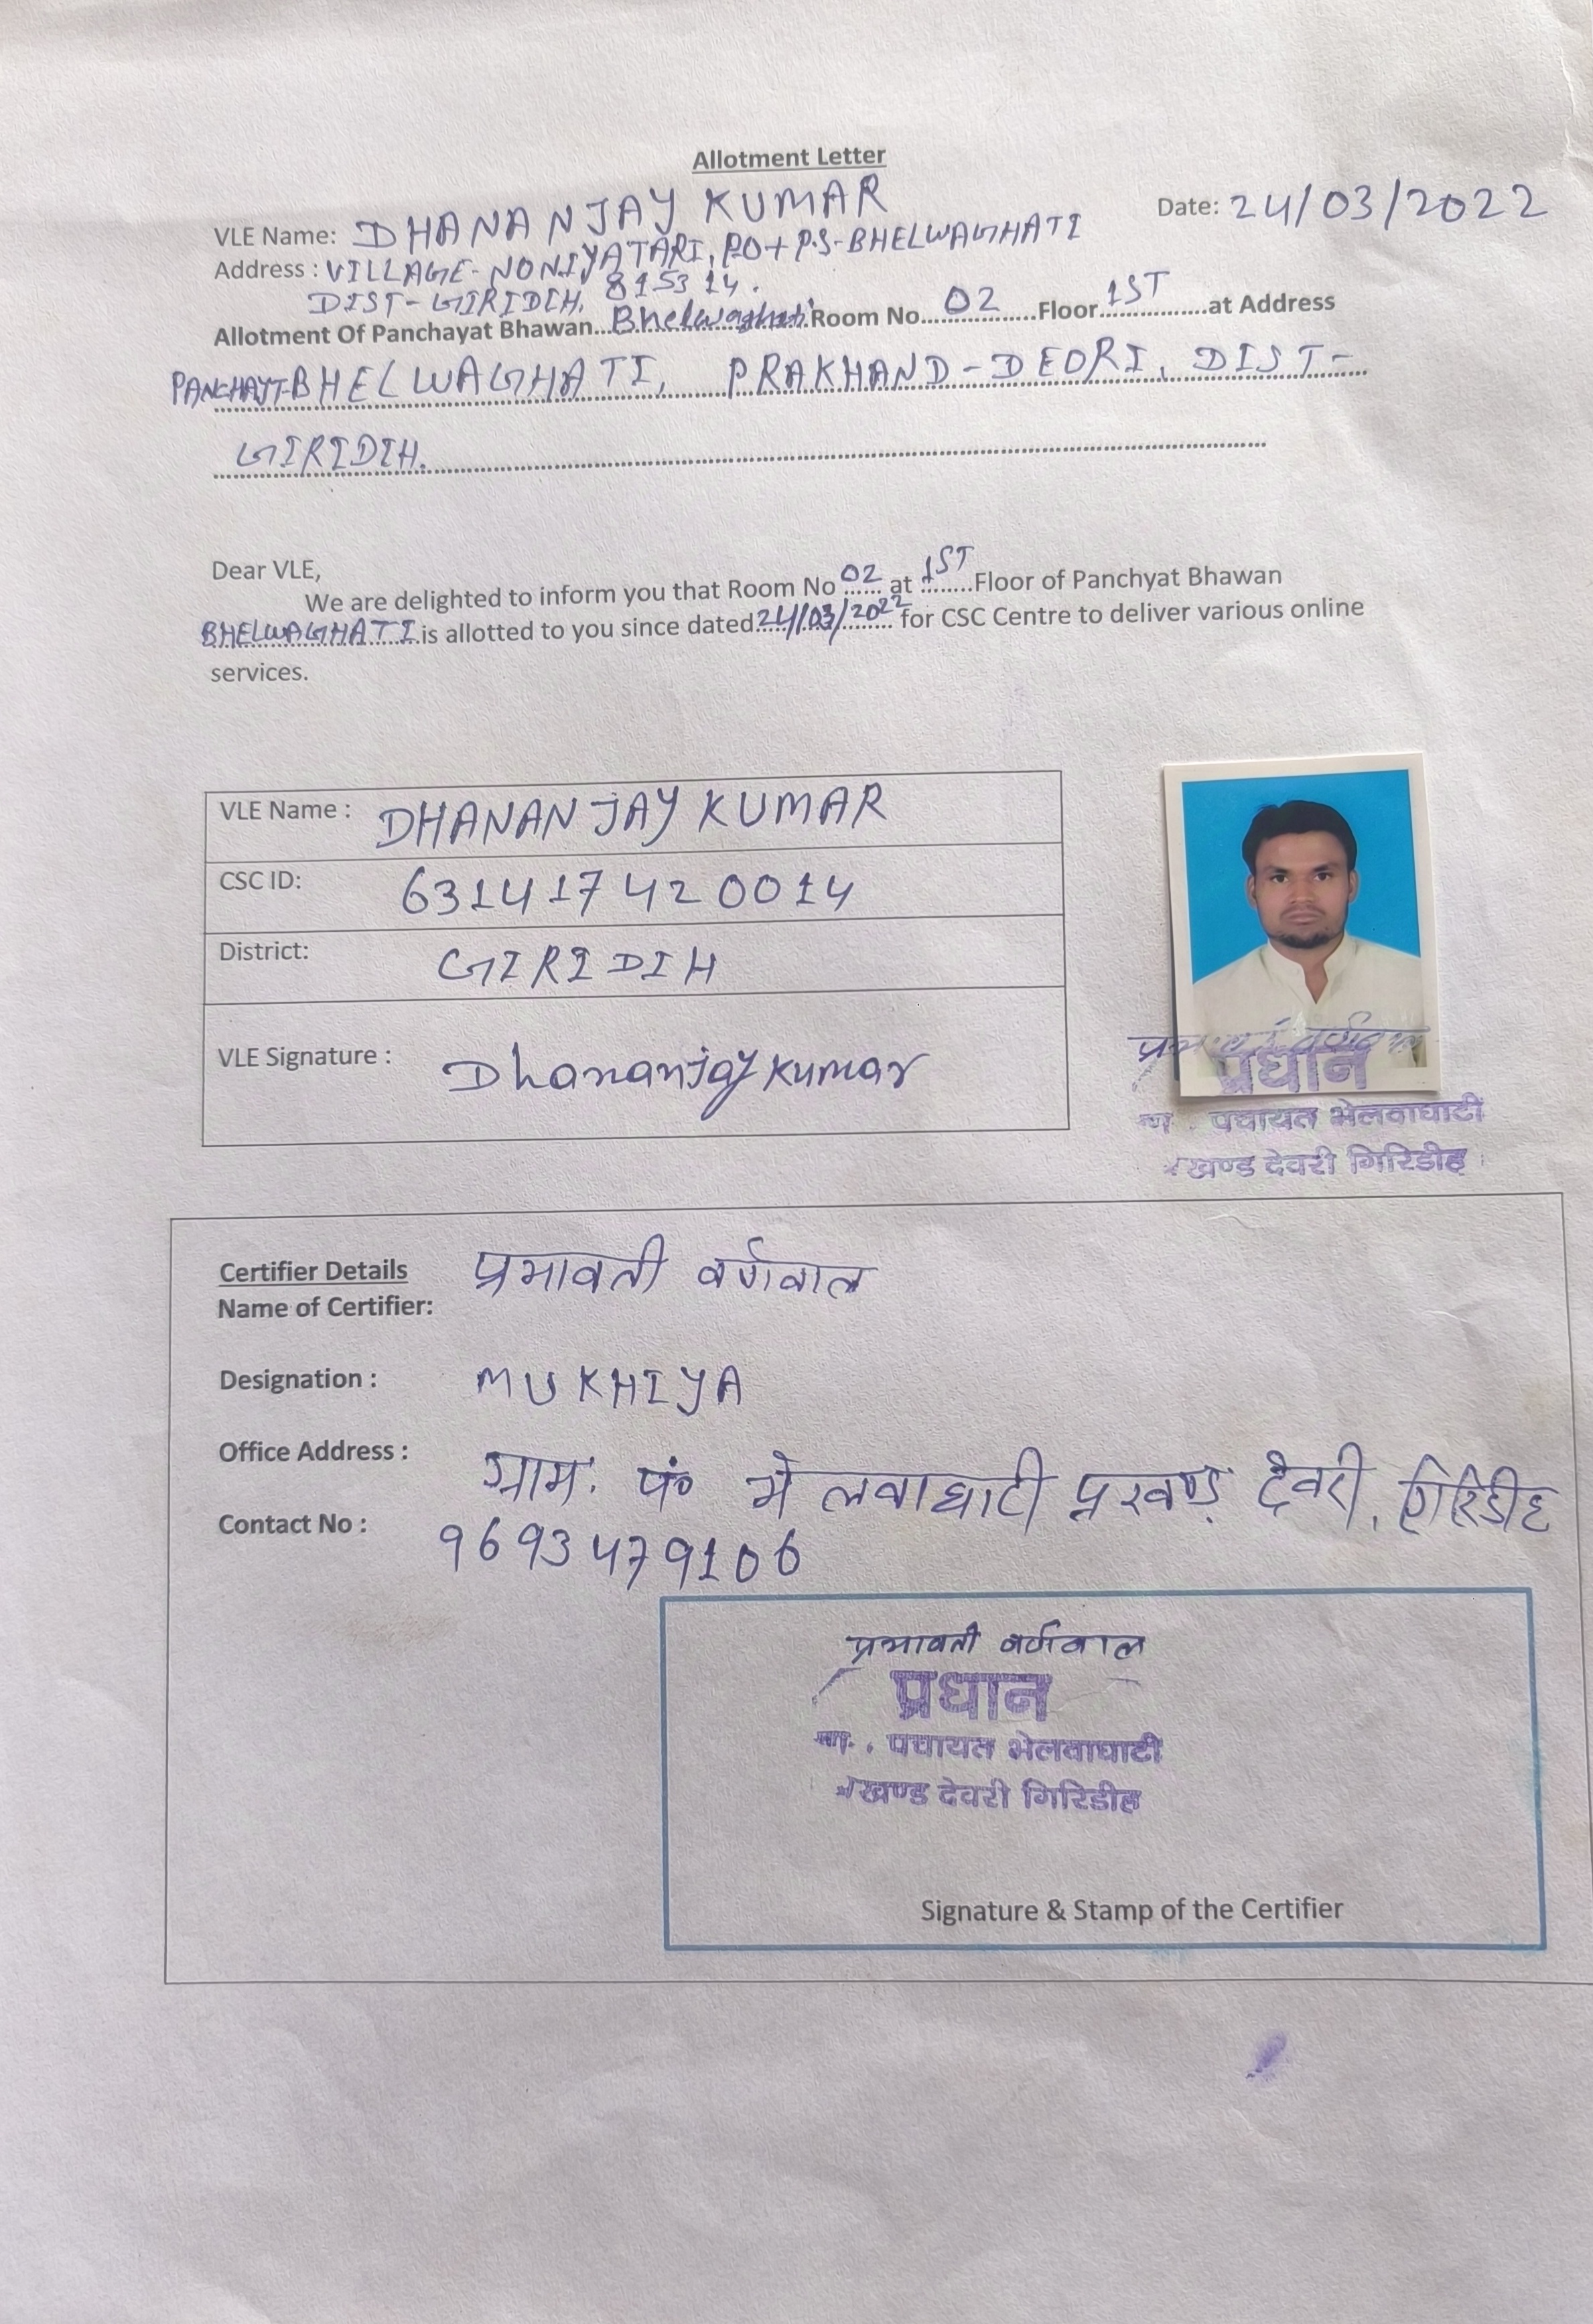 Allotment Letter
VLE Name: DHANANJAY KUMAR Date: 24/03/2022
Address : VILLAGE- NONIYATARI, PO+P.S-BHELWAGHATI
DIST-GIRIDIH, 815314.
Allotment Of Panchayat Bhawan...Bhelwaghati Room No....02....Floor...1ST...at Address
PANCHAYT-BHELWAGHATI, PRAKHAND-DEORI, DIST-
GIRIDIH.
Dear VLE,
We are delighted to inform you that Room No 02 at 1ST Floor of Panchyat Bhawan
BHELWAGHATI is allotted to you since dated 24/03/2022 for CSC Centre to deliver various online
services.
VLE Name : DHANANJAY KUMAR
CSC ID: 631417420014
District: GIRIDIH
VLE Signature : Dhananjay Kumar
वर्णवाल
प्रधान
पंचायत भेलवाघाटी
खण्ड देवरी गिरिडीह
Certifier Details
Name of Certifier: प्रभावती वर्णवाल
Designation : MUKHIYA
Office Address : ग्राम. पं० भेलवाघाटी प्रखण्ड़ देवरी, गिरिडीह
Contact No : 9693479106
प्रभावती वर्णवाल
प्रधान
पंचायत भेलवाघाटी
खण्ड देवरी गिरिडीह
Signature & Stamp of the Certifier